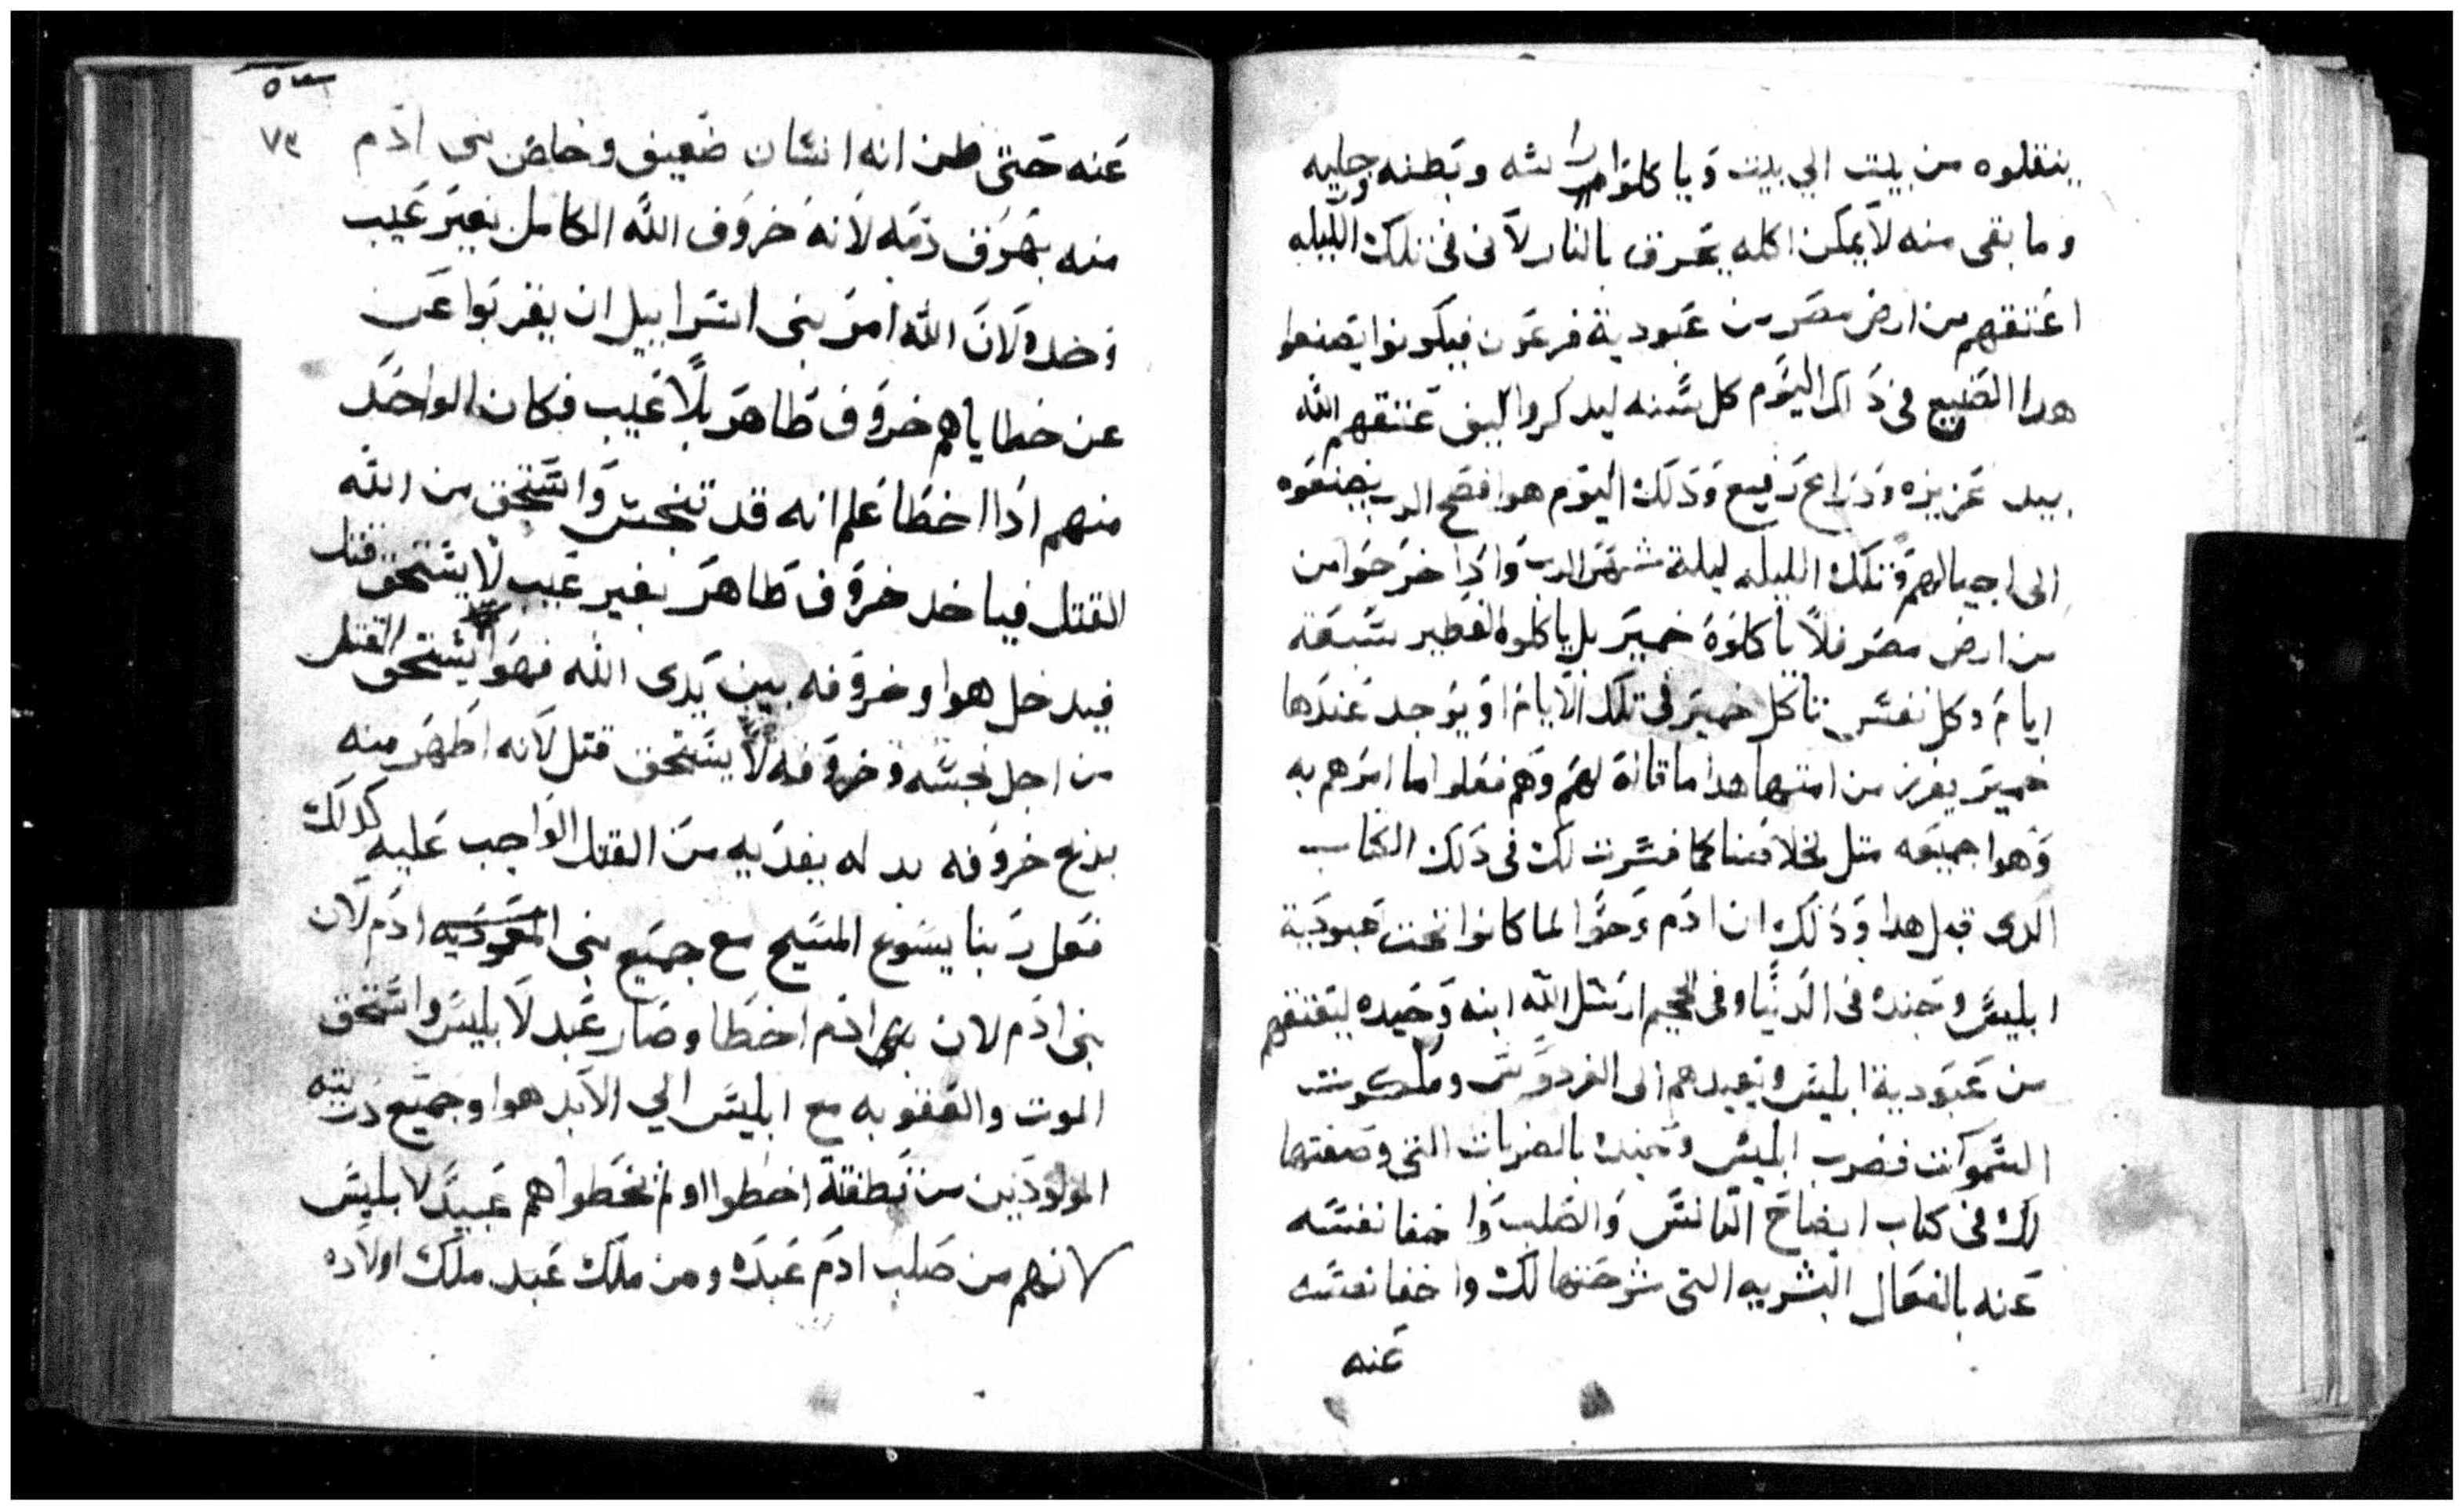 ينقلوه من بيت الي بيت وياكلوا راسه وبطنه ورجليه
وما بقى منه لا يمكن اكله يحرق بالنار لانى فى تلك الليله
اعتقهم من ارض مصر من عبودية فرعون فيكونوا يصنعوا
هدا الصنيع فى داك اليوم كل سنه ليدكروا كيف عتقهم الله
بيد عزيزه ودراع رفيع ودلك اليوم هوا فصح الرب يصنعوه
الى اجيالهم وتلك الليله ليلة شهر الرب وادا خرجوا من
من ارض مصر فلا ياكلوه خمير بل ياكلوه الفطير سبعة
ايام وكل نفس تاكل خمير فى تلك الايام او يوجد عندها
خمير يفرز من امتها هدا ما قاله لهم وهم فعلوا ما امرهم به
وهوا جميعه متل لخلاصنا كما فسرت لك فى دلك الكتاب
الدى قبل هدا ودلك ان ادم وحوا لما كانوا تحت عبودية
ابليس وجنده فى الدنيا وفى الجحيم ارسل الله ابنه وحيده ليعتقهم
من عبودية ابليس ويعيدهم الى الفردوس وملكوت
السموات فضرب ابليس وجنده بالضربات التى وصفتها
لك فى كتاب ايضاح التانس والصلب واخفا نفسه
عنه بالفعال البشريه التى شرحتها لك واخفا نفسه
عنه
٧٣
عنه حتى ظن انه انسان ضعيف وخلص بنى ادم
منه بهرق دمه لانه خروف الله الكامل بغير عيب
وحده ولان الله امر بنى اسراييل ان يقربوا عن
عن خطاياهم خروف طاهر بلا عيب فكان الواحد
منهم ادا اخطا علم انه قد تنجس واستحق من الله
القتل فياخد خروف طاهر بغير عيب لا يستحق قتل
فيدخل هوا وخروفه بين يدى الله فهوا يستحق القتل
من اجل نجسه وخروفه لا يستحق قتل لانه اطهر منه
يدبح خروفه بدله يفديه من القتل الواجب عليه كدلك
فعل ربنا يسوع المسيح مع جميع بنى المعموديه ادم لان
بنى ادم لان ادم اخطا وصار عبد لابليس واستحق
الموت والعقوبه مع ابليس الي الابد هوا وجميع دريته
المولودين من نطفته اخطوا او لم يخطوا هم عبيد لابليس
لانهم من صلب ادم عبده ومن ملك عبد ملك اولاده